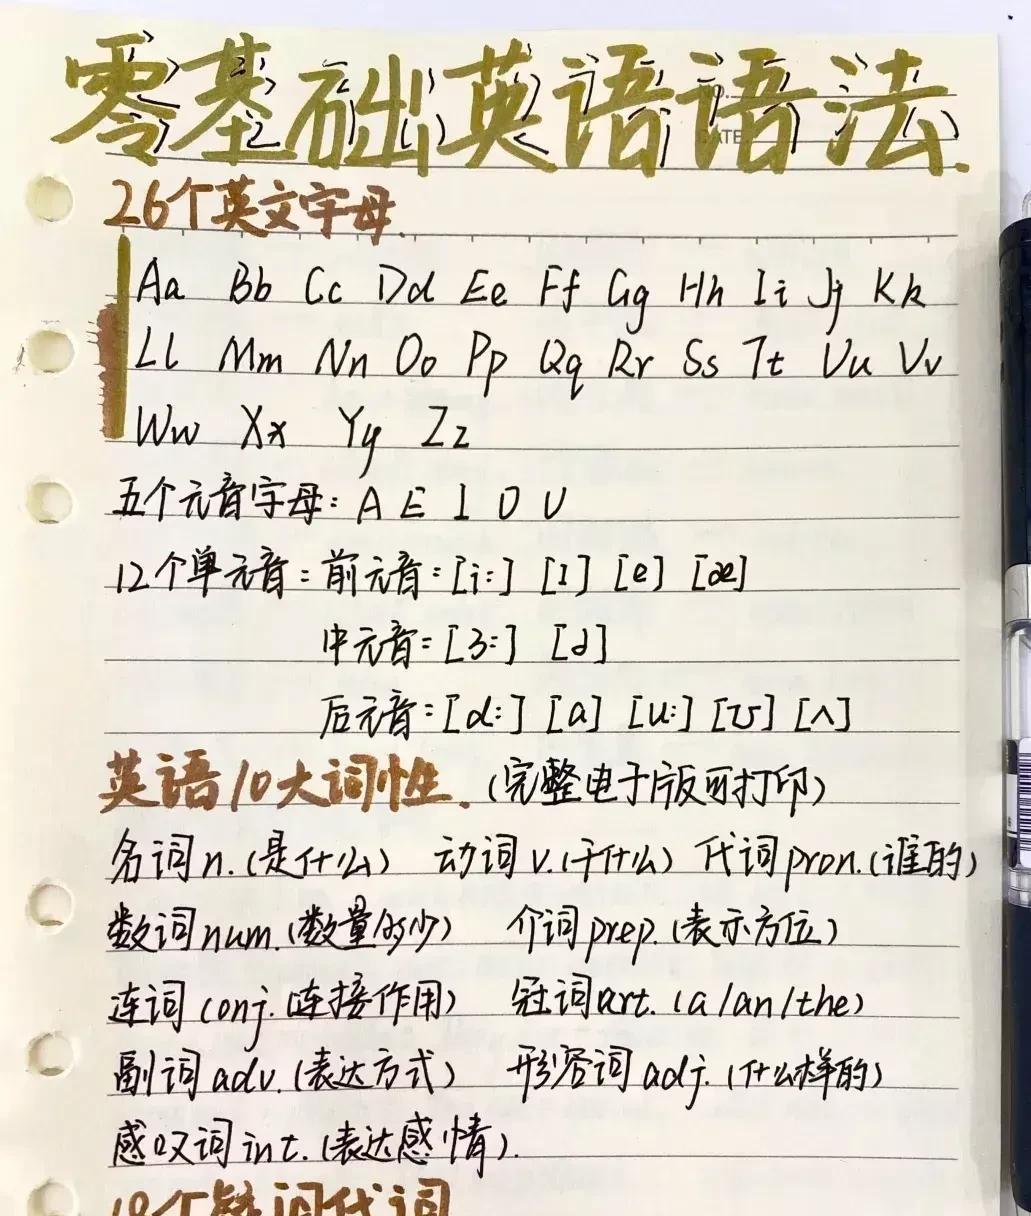 零基础英语语法
26个英文字母
Aa Bb Cc Dd Ee Ff Gg Hh Ii Jj Kk
Ll Mm Nn Oo Pp Qq Rr Ss Tt Uu Vv
Ww Xx Yy Zz
五个元音字母: A E I O U
12个单元音: 前元音: [i:] [I] [e] [æ]
中元音: [ɜ:] [ə]
后元音: [ɑ:] [a] [u:] [ʊ] [ʌ]
英语10大词性. (完整电子版可打印)
名词 n. (是什么) 动词 v. (干什么) 代词 pron. (谁的)
数词 num. (数量多少) 介词 prep. (表示方位)
连词 conj. (连接作用) 冠词 art. (a/an/the)
副词 adv. (表达方式) 形容词 adj. (什么样的)
感叹词 int. (表达感情).
疑问代词